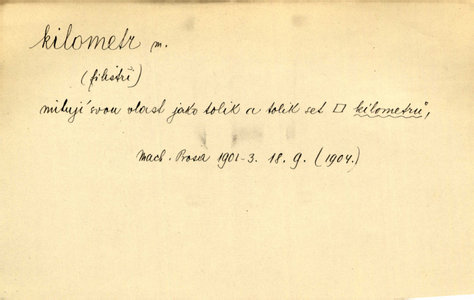 kilometr m.
(filištři)
milují svou vlast jako tolik a tolik set □ kilometrů,
Mach. Prosa 1901-3. 18. 9. (1904.)